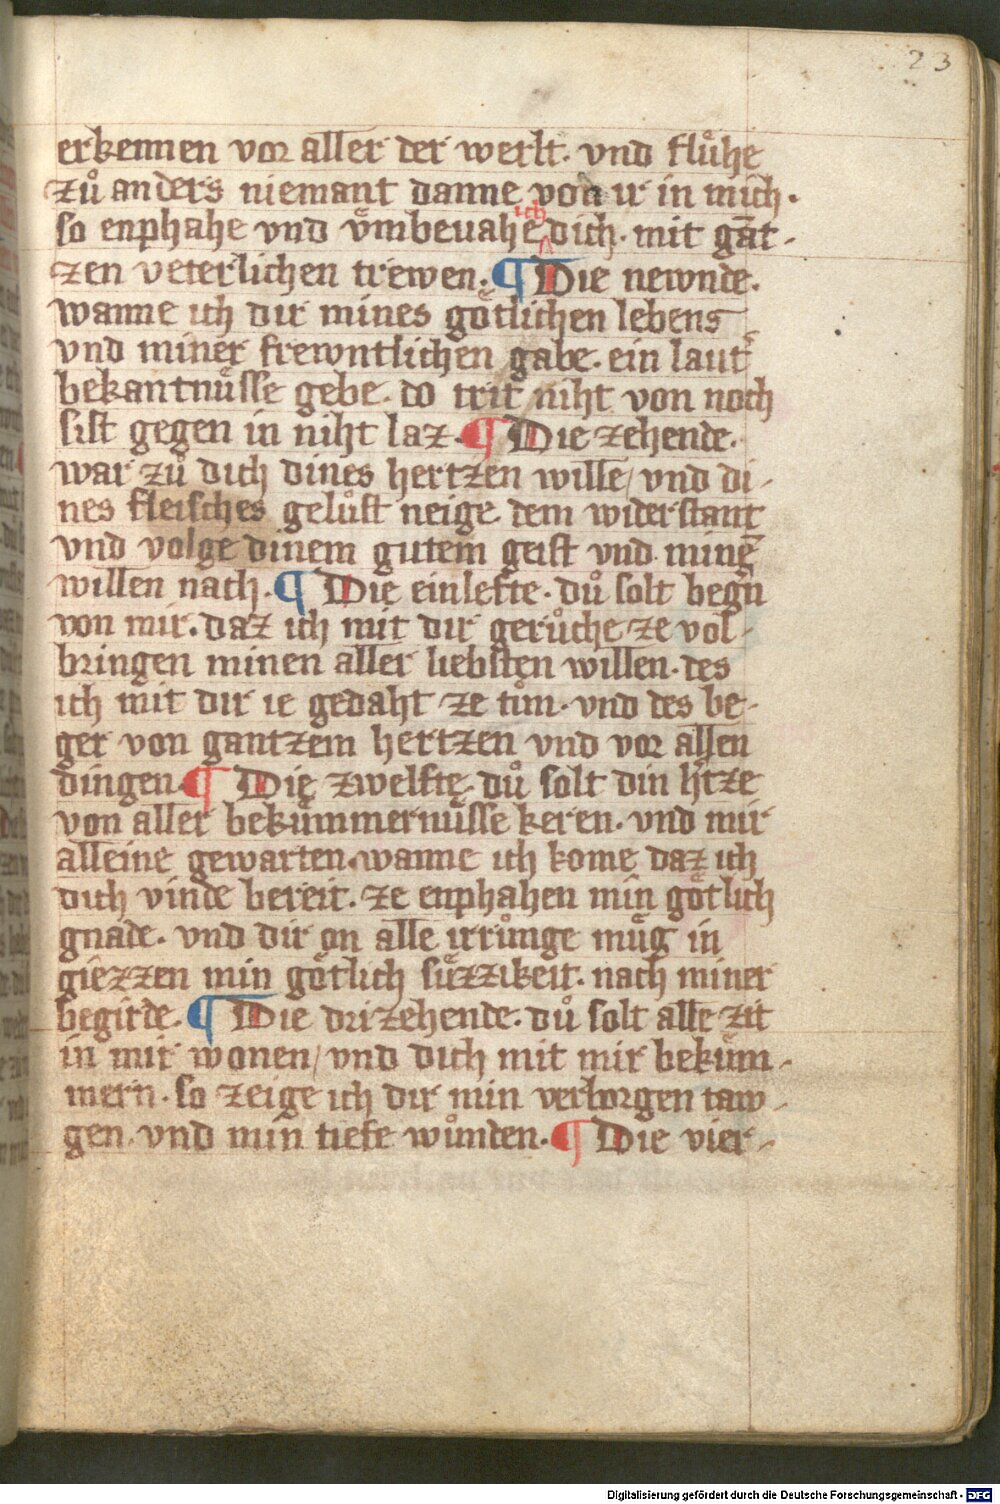 23
erkennen vor aller der werlt. vnd fluͦhe
zuͦ anders niemant danne von ir in mich.
so enphahe vnd vͤmbeuahe ich dich. mit gāt-
zen veterlichen trewen. ¶ Die newnde.
wanne ich dir mines goͤtlichen lebens
vnd miner frewntlichen gabe. ein laut͛
bekantnuͤsse gebe. do trit niht von noch
sist gegen in niht laz. ¶ Die zehende.
war zuͦ dich dines hertzen wille/ vnd di-
nes fleisches geluͦst neige. dem widerstant
vnd volge dinem gutem geist vnd mine͛
willen nach. ¶ Die einlefte. duͦ solt beg͛n
von mir. daz ich mit dir geruͦche ze vol-
bringen minen aller liebsten willen. des
ich mit dir ie gedaht ze tuͦn. vnd des be-
ger von gantzem hertzen vnd vor allen
dingen. ¶ Die zwelfte. duͦ solt din h͛tze
von aller bekuͤmmernuͤsse keren. vnd mir
alleine gewarten. wanne ich kome daz ich
dich vinde bereit. ze enphahen min goͤtlich
gnade. vnd dir on alle irruͦnge muͤg in
giezzen min goͤtlich suͤzzikeit. nach miner
begirde. ¶ Die drizehende. duͦ solt alle zit
in mir wonen/ vnd dich mit mir bekuͤm-
mern. so zeige ich dir min verborgen taw-
gen. vnd min tiefe wuͦnden. ¶ Die vier-
Digitalisierung gefördert durch die Deutsche Forschungsgemeinschaft - DFG